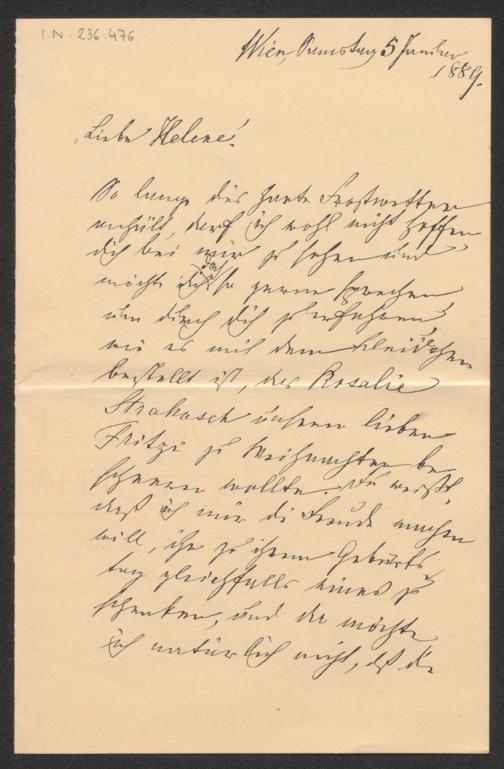 I.N. 236.476
Wien, Samstag 5 Januar
1889.
Liebe Helene!
So lange das harte Frostwetter
anhält, darf ich wohl nicht hoffen
dich bei mir zu sehen und
möchte dich so gerne sprechen
um durch dich zu erfahren,
wie es mit dem Kleidchen
bestellt ist, das Rosalie
Strakosch unserer lieben
Fritzi zu Weihnachten be
scheeren wollte. Du weißt,
daß ich mir die Freude machen
will, ihr zu ihrem Geburts
tag gleichfalls eines zu
schenken, und da möchte
ich natürlich nicht, daß die